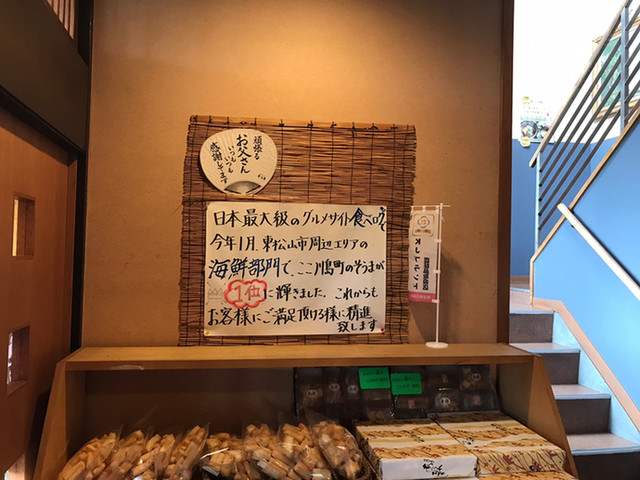 頑張る
お父さん
いつも
いつも
感謝してます
日本最大級のグルメサイト食べログで
今年1月、東松山市周辺エリアの
海鮮部門で、ここ川島町のそうまが
1位に輝きました。これからも
お客様にご満足頂ける様に精進
致します